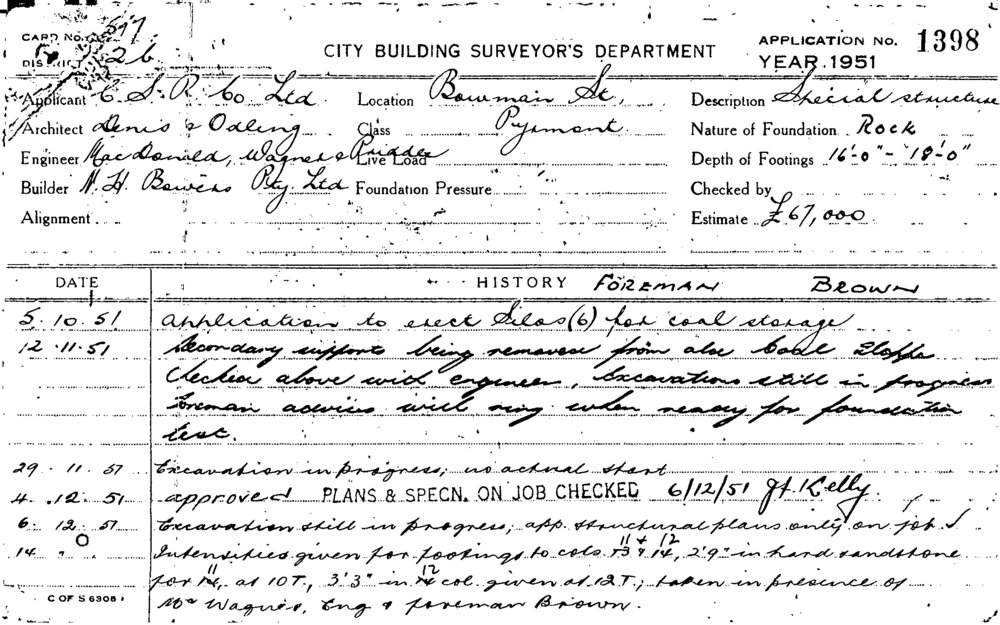 CARD NO. 577
DISTRICT 26
CITY BUILDING SURVEYOR'S DEPARTMENT
APPLICATION No. 1398
YEAR 1951
Applicant C. S. R. Co Ltd. Location Bowman St, Description Special structure
Architect Denis & Odling Class Pyrmont Nature of Foundation Rock
Engineer MacDonald, Wagner & Priddle Live Load Depth of Footings 16'-0" - 18'-0"
Builder H. Bowers Pty. Ltd Foundation Pressure Checked by
Alignment Estimate £67,000
DATE HISTORY FOREMAN BROWN
5.10.51 Application to erect Silos (6) for coal storage
12.11.51 Secondary supports being removed from Coal
Checked above with engineer, Excavations still in progress
Foreman advises will ring when ready for foundation
test.
29.11.51 Excavation in progress; no actual start
4.12.51 approved PLANS & SPECN. ON JOB CHECKED 6/12/51 Kelly.
6.12.51 Excavation still in progress; app. structural plans only on job
14 " " Intensities given for footings to cols. 13 & 14, 11 & 12 2'9" in hard sandstone
for 14, 11 at 10T., 3'3" in 14 12 col. given at 12T.; taken in presence of
Mr Wagner, Eng & foreman Brown.
C OF S 6308